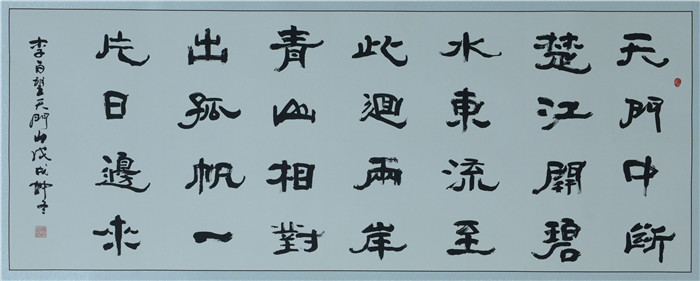 天門中断
楚江開碧
水東流至
此迴兩岸
青山相對
出孤帆一
片日邊來
李白望天門山戊戌